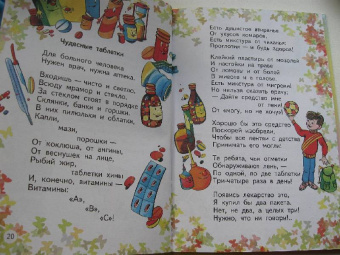 Чудесные таблетки
Для больного человека
Нужен врач, нужна аптека.
Входишь — чисто и светло,
Всюду мрамор и стекло.
За стеклом стоят в порядке
Склянки, банки и горшки,
В них пилюльки и облатки,
Капли,
мази,
порошки —
От коклюша, от ангины,
От веснушек на лице,
Рыбий жир,
таблетки хины
И, конечно, витамины —
Витамины:
«А»,
«В»,
«С»!
20
Есть душистое втиранье
От укусов комаров,
Есть микстура от чиханья:
Проглотил — и будь здоров!
Клейкий пластырь от мозолей
И настойки на траве
От ломоты и от болей
В животе и в голове.
Есть микстура от мигрени,
Но нельзя сказать врачу:
— Дайте средство мне
от лени!
От «могу, но не хочу».
Хорошо бы это средство
Поскорей изобрели,
Чтобы все лентяи с детства
Принимать его могли!
Те ребята, чьи отметки
Обнаруживают лень, —
По одной, по две таблетки
Три-четыре раза в день!
Появись лекарство это,
Я купил бы два пакета.
Нет, не два, а целых три!
Нужно, что ни говори!..